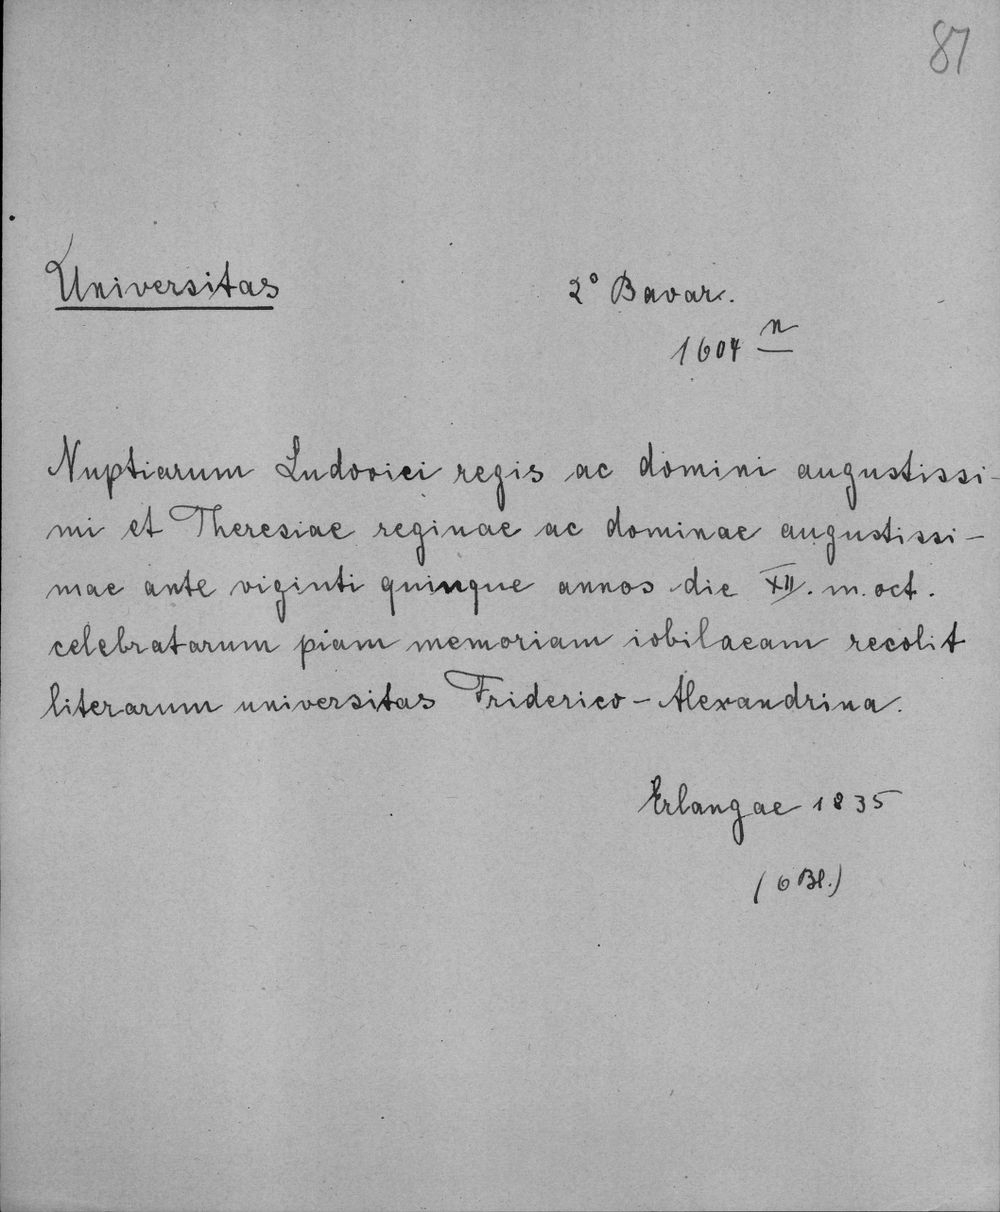 87
Universitas
2° Bavar.
1604 n
Nuptiarum Ludovici regis ac domini augustissi-
mi et Theresiae reginae ac dominae augustissi-
mae ante viginti quinque annos die XII. m. oct.
celebratarum piam memoriam iobilaeam recolit
literarum universitas Friderico-Alexandrina.
Erlangae 1835
(6 Bl.)